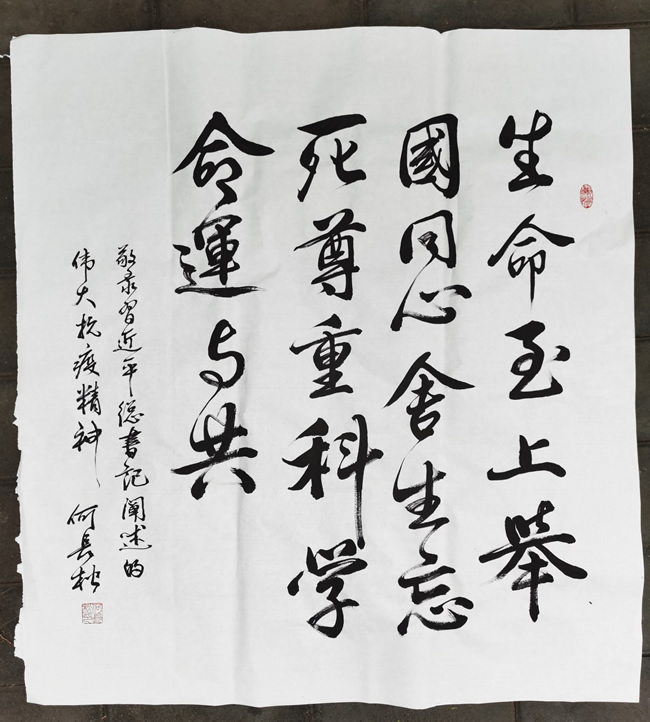 生命至上舉
國同心舍生忘
死尊重科学
命運与共
敬录習近平総書记阐述的
伟大抗疫精神 何長